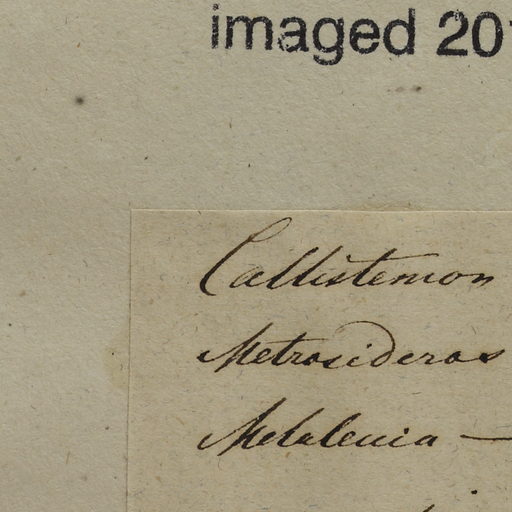 imaged 20
Callistemon
Metrosideros
Melaleuca —